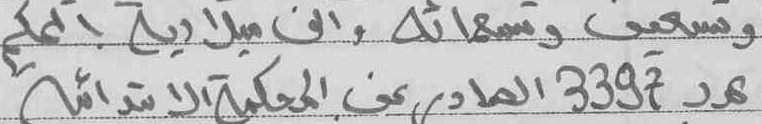 وتسعين وتسعمائة والف ميلادية الحكم
عدد 3397 الصادر عن المحكمة الابتدائية